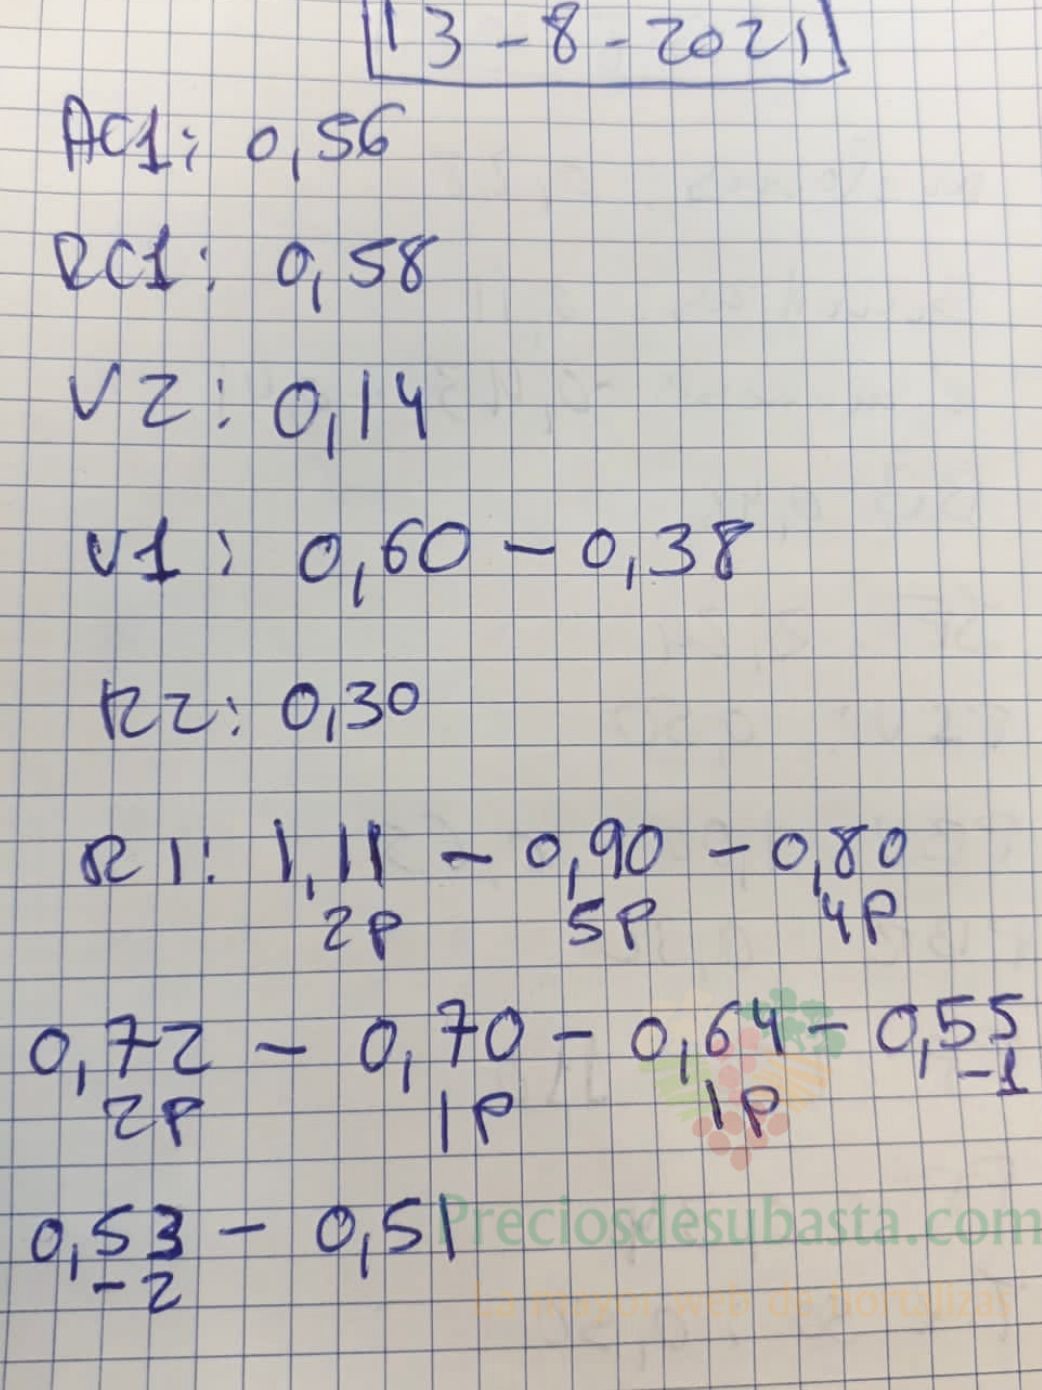 13-8-2021
AC1: 0,56
RC1: 0,58
V2: 0,14
V1: 0,60 - 0,38
R2: 0,30
R1: 1,11 - 0,90 - 0,80
2P 5P 4P
0,72 - 0,70 - 0,64 - 0,55
2P 1P 1P -1
0,53 - 0,51
-2
Preciosdesubasta.com
La mayor web de hortalizas